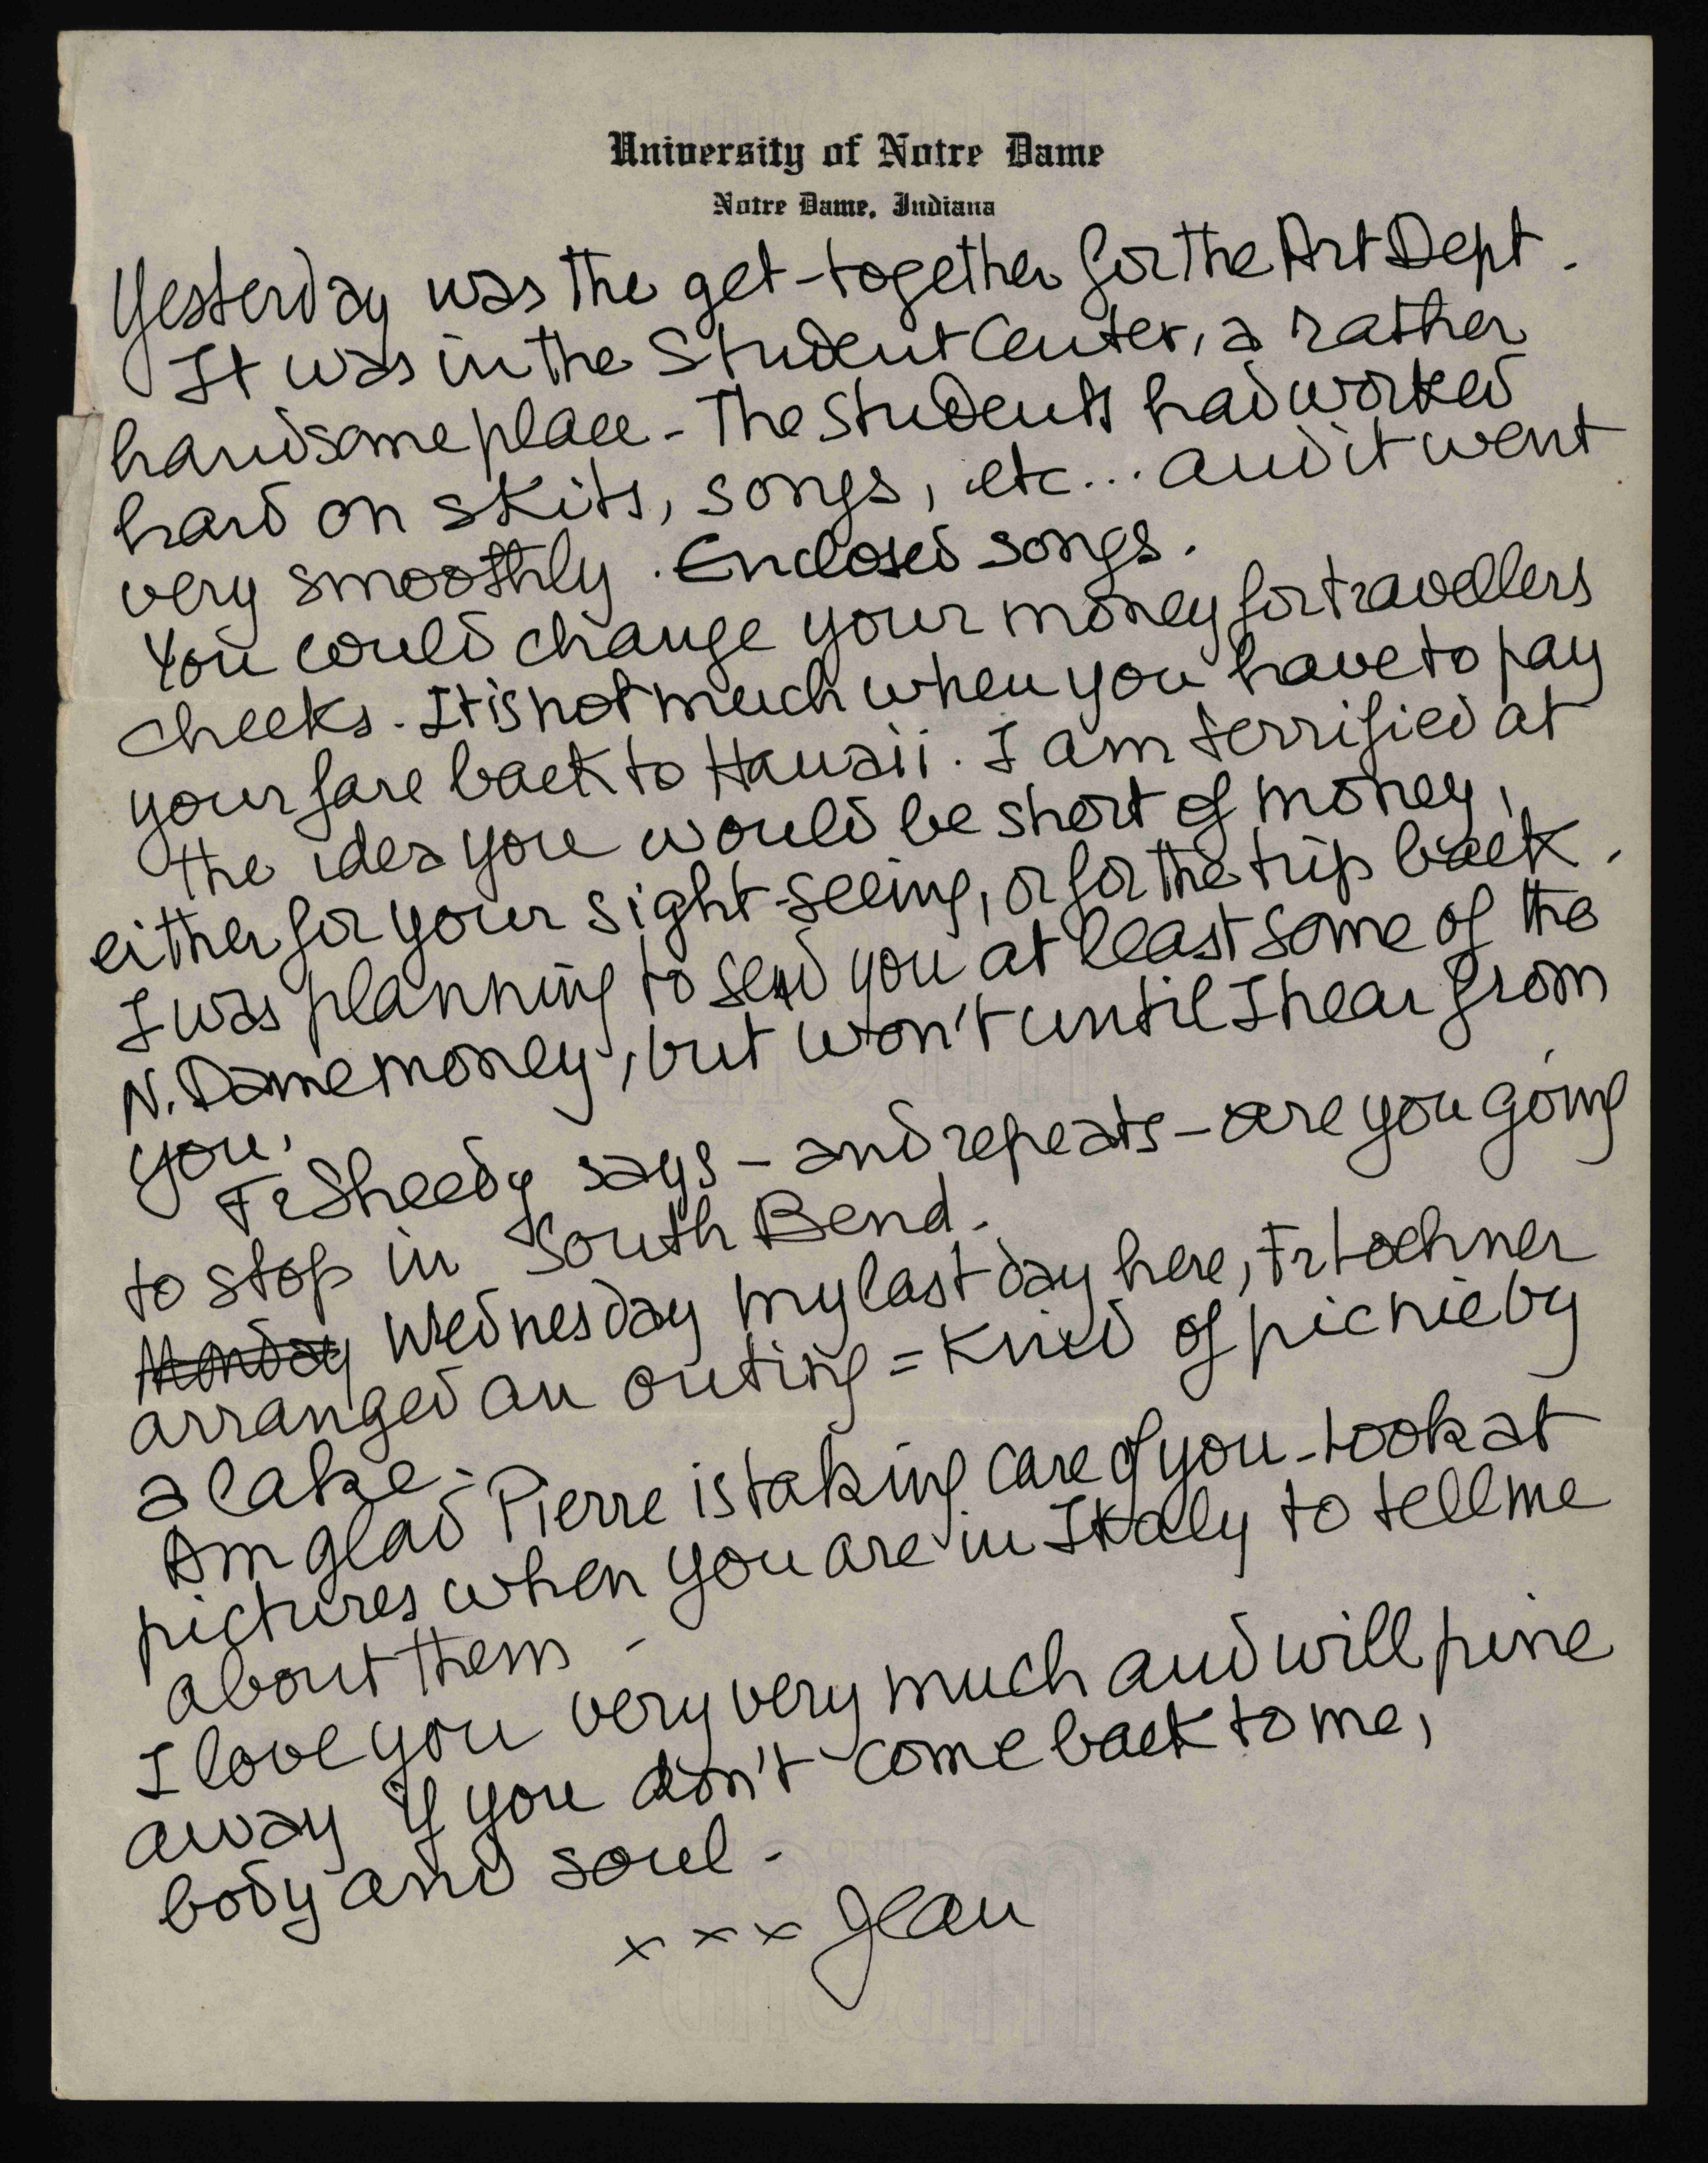 University of Notre Dame
Notre Dame, Indiana
Yesterday was the get-together for the Art Dept.
It was in the Student Center, a rather
handsome place - The students had worked
hard on skits, songs, etc... and it went
very smoothly. Enclosed songs.
You could change your money for travellers
checks. It is not much when you have to pay
your fare back to Hawaii. I am terrified at
the idea you would be short of money,
either for your sight-seeing, or for the trip back.
I was planning to send you at least some of the
N. Dame money, but won't until I hear from
you.
Fr Sheedy says - and repeats - are you going
to stop in South Bend.
Monday Wednesday my last day here, Fr
arranged an outing = Kind of picnic by
a lake -
Am glad Pierre is taking care of you - Look at
pictures when you are in Italy to tell me
about them -
I love you very very much and will pine
away if you don't come back to me,
body and soul -
xxx Jean